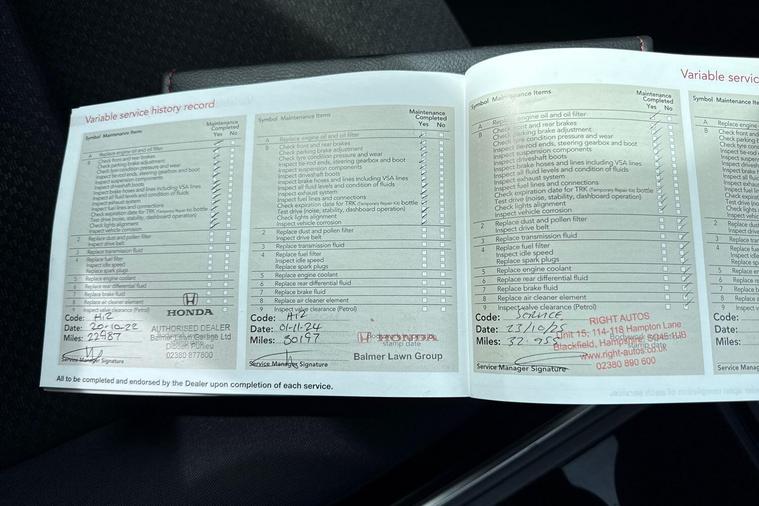 Variable service history record
Symbol Maintenance Items
Maintenance Completed
Yes No
A Replace engine oil and oil filter
B Check front and rear brakes
Check parking brake adjustment
Check tyre condition pressure and wear
Inspect tie-rod ends, steering gearbox and boot
Inspect suspension components
Inspect driveshaft boots
Inspect brake hoses and lines including VSA lines
Inspect all fluid levels and condition of fluids
Inspect exhaust system
Inspect fuel lines and connections
Check expiration date for TRK (Temporary Repair Kit) bottle
Test drive (noise, stability, dashboard operation)
Check lights alignment
Inspect vehicle corrosion
2 Replace dust and pollen filter
Inspect drive belt
3 Replace transmission fluid
4 Replace fuel filter
Inspect idle speed
Replace spark plugs
5 Replace engine coolant
6 Replace rear differential fluid
7 Replace brake fluid
8 Replace air cleaner element
9 Inspect valve clearance (Petrol)
Code:
Date: 20-10-22
Miles: 22987
Service Manager Signature
HONDA
AUTHORISED DEALER
Balmer Lawn Garage Ltd
02380 877800
Symbol Maintenance Items
Maintenance Completed
Yes No
A Replace engine oil and oil filter
B Check front and rear brakes
Check parking brake adjustment
Check tyre condition pressure and wear
Inspect tie-rod ends, steering gearbox and boot
Inspect suspension components
Inspect driveshaft boots
Inspect brake hoses and lines including VSA lines
Inspect all fluid levels and condition of fluids
Inspect exhaust system
Inspect fuel lines and connections
Check expiration date for TRK (Temporary Repair Kit) bottle
Test drive (noise, stability, dashboard operation)
Check lights alignment
Inspect vehicle corrosion
2 Replace dust and pollen filter
Inspect drive belt
3 Replace transmission fluid
4 Replace fuel filter
Inspect idle speed
Replace spark plugs
5 Replace engine coolant
6 Replace rear differential fluid
7 Replace brake fluid
8 Replace air cleaner element
9 Inspect valve clearance (Petrol)
Code:
Date: 01-11-24
Miles: 30197
Service Manager Signature
HONDA
stamp date
Balmer Lawn Group
All to be completed and endorsed by the Dealer upon completion of each service.
Symbol Maintenance Items
Maintenance Completed
Yes No
A Replace engine oil and oil filter
B Check front and rear brakes
Check parking brake adjustment
Check tyre condition pressure and wear
Inspect tie-rod ends, steering gearbox and boot
Inspect suspension components
Inspect driveshaft boots
Inspect brake hoses and lines including VSA lines
Inspect all fluid levels and condition of fluids
Inspect exhaust system
Inspect fuel lines and connections
Check expiration date for TRK (Temporary Repair Kit) bottle
Test drive (noise, stability, dashboard operation)
Check lights alignment
Inspect vehicle corrosion
2 Replace dust and pollen filter
Inspect drive belt
3 Replace transmission fluid
4 Replace fuel filter
Inspect idle speed
Replace spark plugs
5 Replace engine coolant
6 Replace rear differential fluid
7 Replace brake fluid
8 Replace air cleaner element
9 Inspect valve clearance (Petrol)
Code: Service
Date: 23/10/25
Miles: 32.955
Service Manager Signature
RIGHT AUTOS
Unit 15, 114-118 Hampton Lane
Blackfield, Hampshire, SO45 1UB
www.right-autos.co.uk
02380 890 600
Variable servic
Symbol Maintenance Ite
A Replace engine
B Check front and
Check parking
Check tyre con
Inspect tie-rod
Inspect
Inspect
Inspect
2 Replace dust
Inspect drive b
3 Replace
4 Replace fuel
Inspect idle
Replace spa
5 Replace en
6 Replace
7 Replace
8 Replace
9 Inspect
Code:
Date:
Miles:
Service Manag